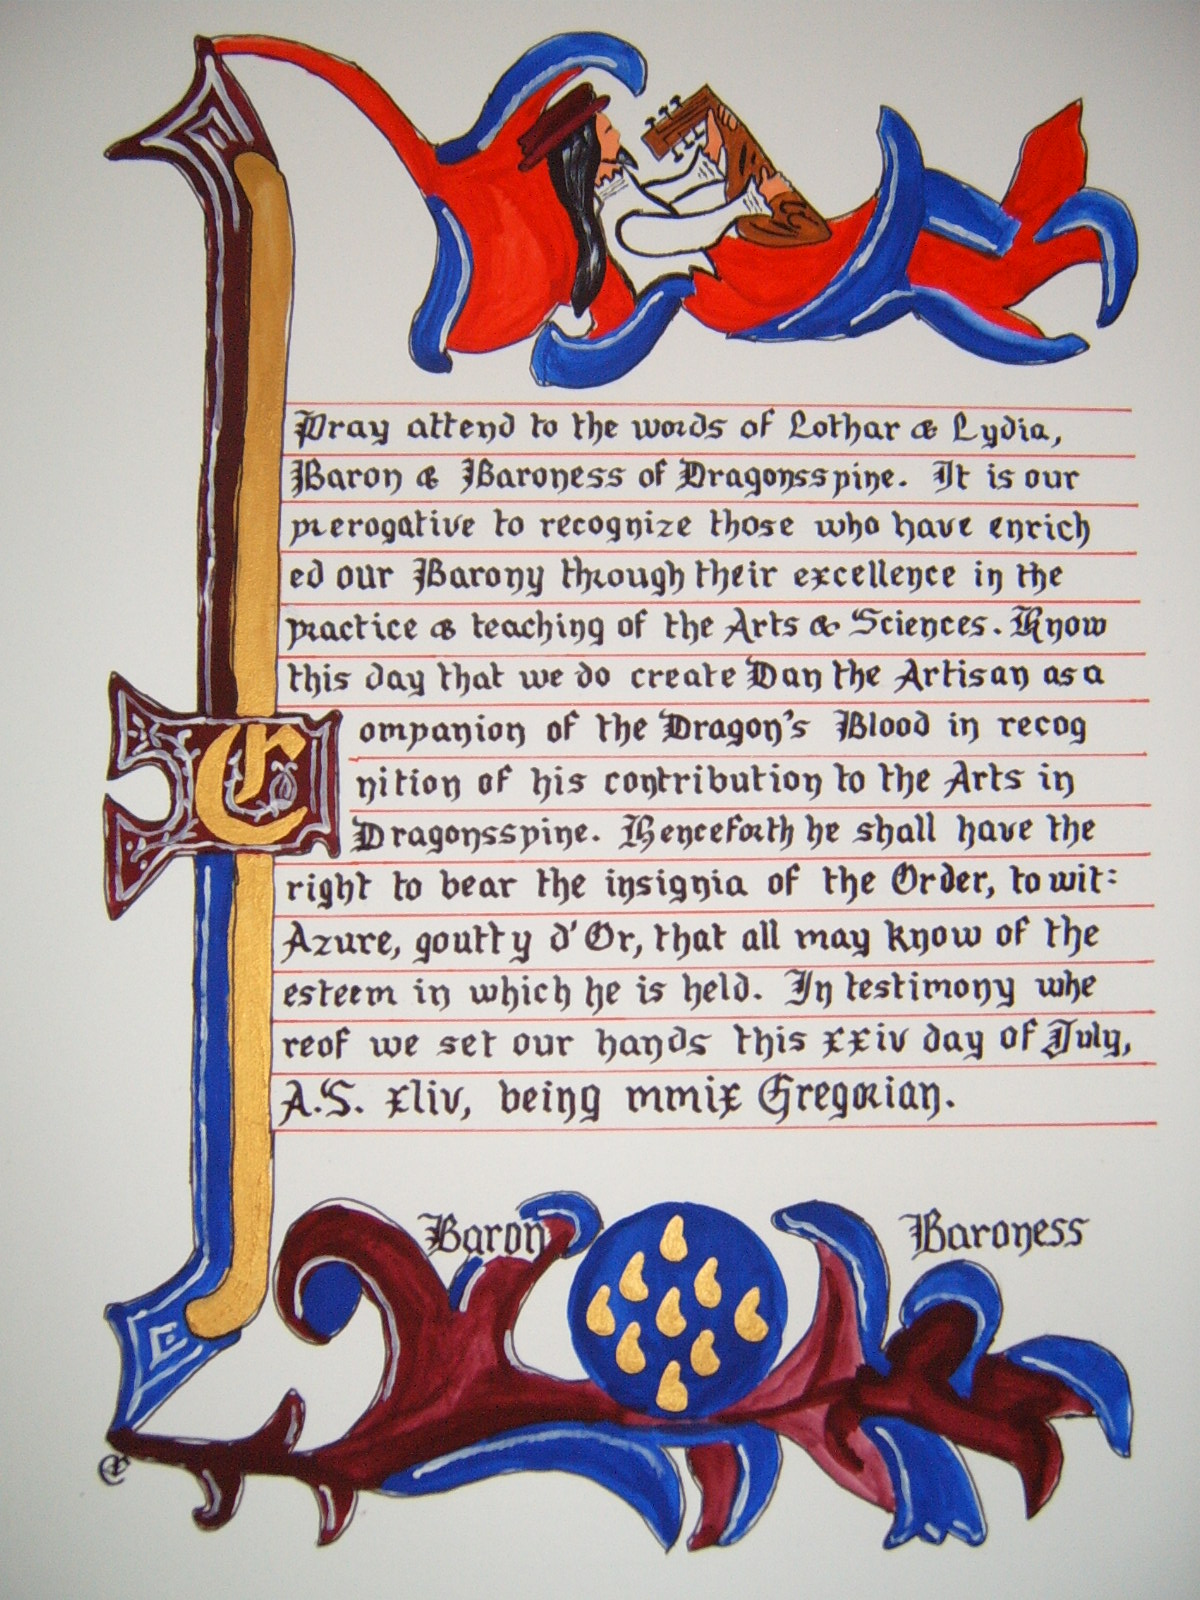 Pray attend to the words of Lothar & Lydia,
Baron & Baroness of Dragonsspine. It is our
prerogative to recognize those who have enrich
ed our Barony through their excellence in the
practice & teaching of the Arts & Sciences. Know
this day that we do create Dan the Artisan as a
Companion of the Dragon's Blood in recog
nition of his contribution to the Arts in
Dragonsspine. Henceforth he shall have the
right to bear the insignia of the Order, to wit:
Azure, goutty d'Or, that all may know of the
esteem in which he is held. In testimony whe
reof we set our hands this xxiv day of July,
A.S. xliv, being mmix Gregorian.
Baron Baroness